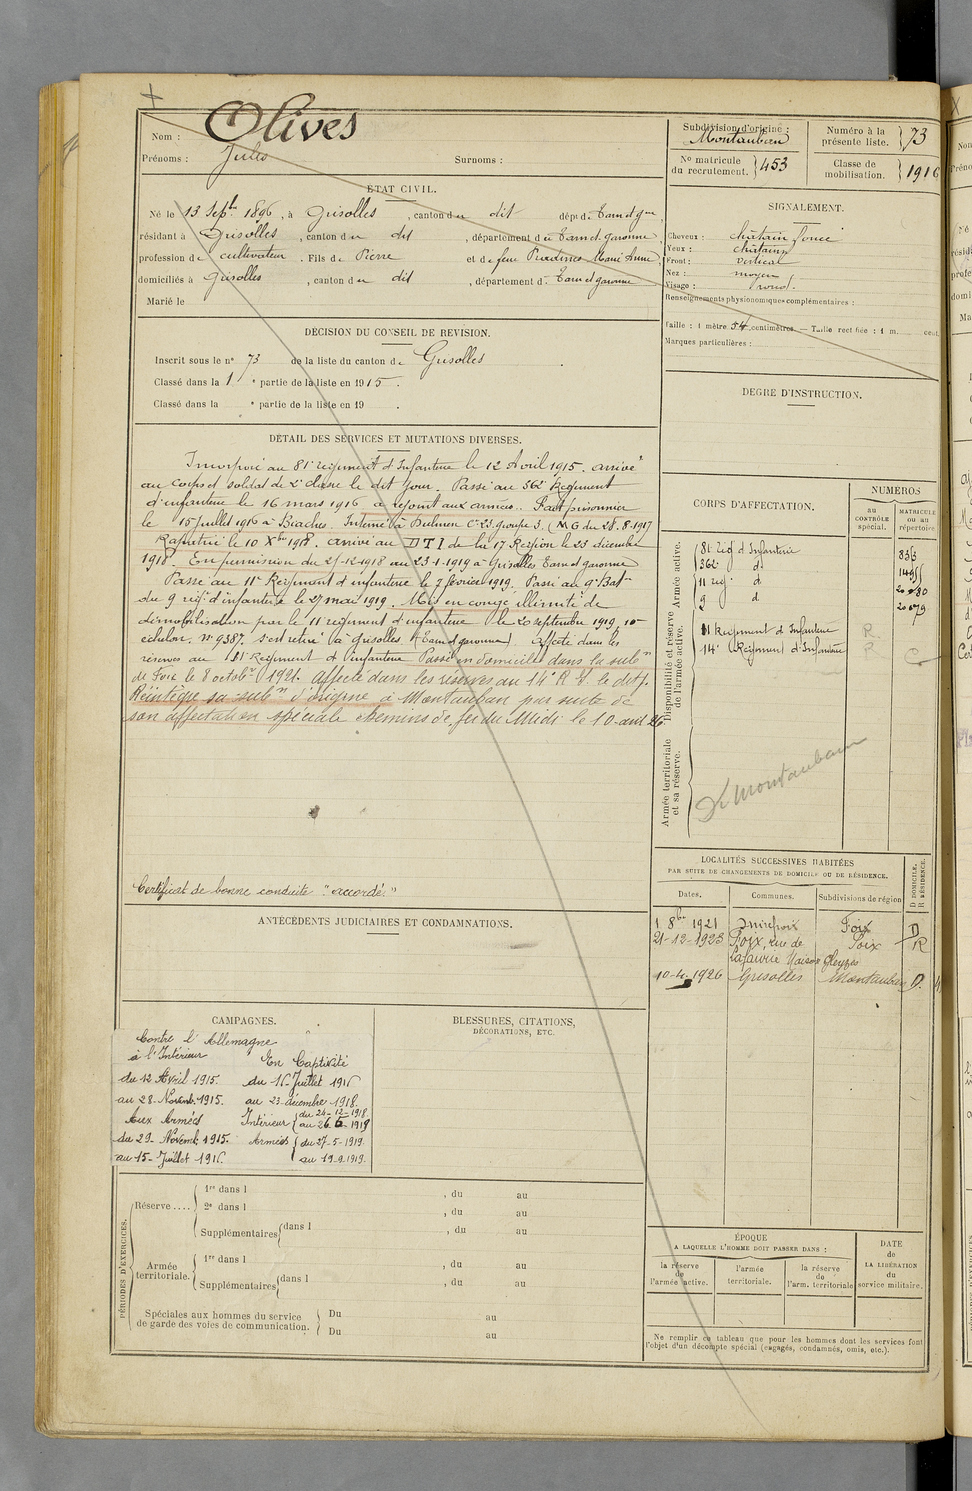 Nom : Olives
Prénoms : Jules Surnoms :
Subdivision d'origine :
Montauban
No matricule
du recrutement. 453
Numéro à la
présente liste. 73
Classe de
mobilisation. 1916
ÉTAT CIVIL.
Né le 13 Septbre 1896, à Grisolles, canton du dit dépt de Tarn et Gne
résidant à Grisolles, canton du dit, département de Tarn et garonne
profession de cultivateur. Fils de Pierre et de feue Marie Anne
domiciliés à Grisolles, canton du dit, département d. Tarn et garonne
Marié le
SIGNALEMENT.
Cheveux : châtain foncé
Yeux : châtains
Front : vertical
Nez : moyen
Visage : rond.
Renseignements physionomiques complémentaires :
Taille : 1 mètre 54 centimètres. — Taille rectifiée : 1 m. cent.
Marques particulières :
DÉCISION DU CONSEIL DE RÉVISION.
Inscrit sous le n° 73 de la liste du canton de Grisolles
Classé dans la 1e partie de la liste en 1915.
Classé dans la e partie de la liste en 19 .
DEGRÉ D'INSTRUCTION.
DÉTAIL DES SERVICES ET MUTATIONS DIVERSES.
Incorporé au 81e régiment d'Infanterie le 12 Avril 1915. arrivé
au corps et soldat de 2e classe le dit jour. Passé au 362e Régiment
d'infanterie le 16 mars 1916 a rejoint aux armées. Fait prisonnier
le 15 Juillet 1916 à Biaches. Interné à Dulmen Cie 23. groupe 3. (MG du 28.8.1917
Rapatrié le 10 Xbre 1918. arrivé au DTI de la 17 Région le 23 décembre
1918. En permission du 24-12-1918 au 23-1-1919 à Grisolles Tarn et garonne
Passé au 11e Régiment d'infanterie le 7 février 1919. Passé au 9e Baton
du 9 régt d'infanterie le 27 mai 1919. Mis en congé illimité de
démobilisation par le 11 régiment d'infanterie le 20 septembre 1919, 10e
échelon, n° 9387. s'est retiré à Grisolles (Tarn et garonne) Affecté dans les
réserves au 11e Régiment d'infanterie Passé en domicile dans la subon
de Foix le 8 octobre 1921. affecté dans les réserves au 14e R.I. le dit j.
Réintègre sa subon d'origine à Montauban par suite de
son affectation spéciale chemins de fer du Midi le 10 avril 26
Certificat de bonne conduite "accordé."
CORPS D'AFFECTATION.
NUMÉROS
au
CONTRÔLE
spécial.
MATRICULE
ou au
répertoire
Armée active.
81 rég d'Infanterie
362e d°
11 rég d°
9 d°
Disponibilité et réserve
de l'armée active.
11 Régiment d'Infanterie R.
14e Régiment d'Infanterie R
Armée territoriale
et sa réserve.
Montauban
LOCALITÉS SUCCESSIVES HABITÉES
PAR SUITE DE CHANGEMENTS DE DOMICILE OU DE RÉSIDENCE.
Dates. Communes. Subdivisions de région
D DOMICILE.
R RÉSIDENCE.
1 8bre 1921 Mirepoix Foix D
21-12-1923 Foix, rue de Foix R
Lafaurie Maison
10-4-1926 Grisolles Montauban D.
ANTÉCÉDENTS JUDICIAIRES ET CONDAMNATIONS.
CAMPAGNES.
Contre l'Allemagne
à l'Intérieur
du 12 Avril 1915.
au 28. Novemb. 1915.
Aux Armées
du 29. Novemb. 1915.
au 15. Juillet 1916.
En Captivité
du 16 Juillet 1916
au 23 décembre 1918.
Intérieur du 24-12-1918.
au 26-5-1919
Armées du 27-5-1919.
au 19-9-1919.
BLESSURES, CITATIONS,
DÉCORATIONS, ETC.
PÉRIODES D'EXERCICES.
Réserve....
1re dans l , du au
2e dans l , du au
Supplémentaires dans l , du au
Armée
territoriale.
1re dans l , du au
Supplémentaires dans l , du au
Spéciales aux hommes du service
de garde des voies de communication.
Du au
Du au
ÉPOQUE
A LAQUELLE L'HOMME DOIT PASSER DANS :
la réserve
de
l'armée active.
l'armée
territoriale.
la réserve
de
l'arm. territoriale
DATE
de
LA LIBÉRATION
du
service militaire.
Ne remplir ce tableau que pour les hommes dont les services font
l'objet d'un décompte spécial (engagés, condamnés, omis, etc.).